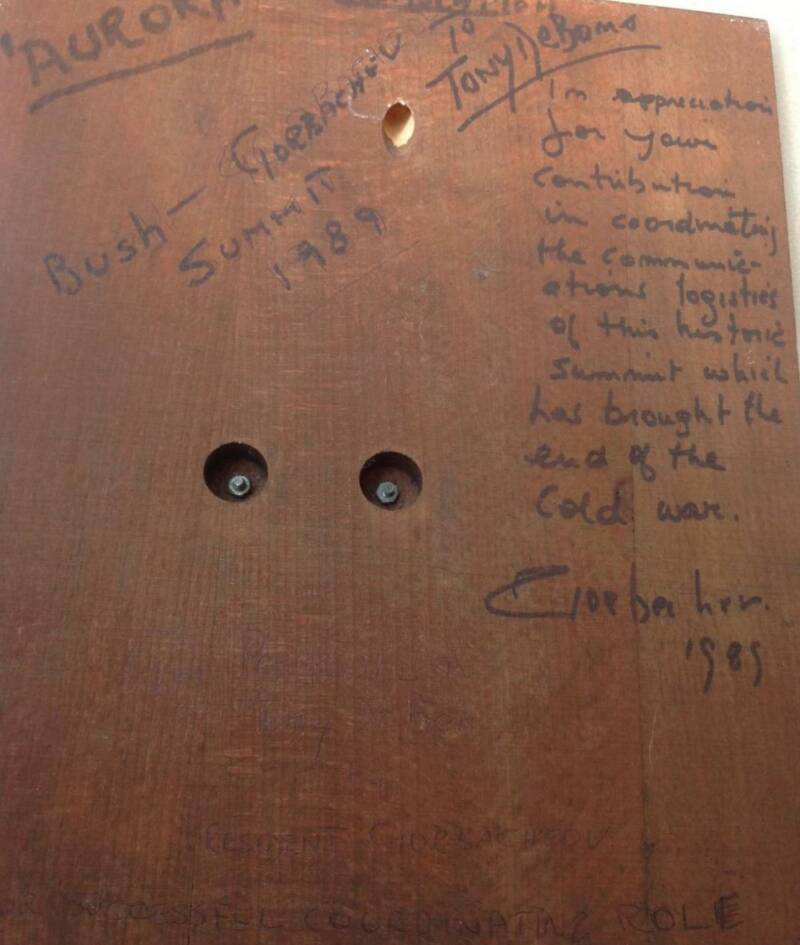 'AURORA
Bush - GORBACHEV
SUMMIT
1989
To
TONY DeBono
In appreciation
for your
contribution
in coordinating
the communic-
ations logistics
of this historic
summit which
has brought the
end of the
Cold war.
Gorbachev.
1989
GIORBACHEOV
SUCCESSFUL COORDINATING ROLE